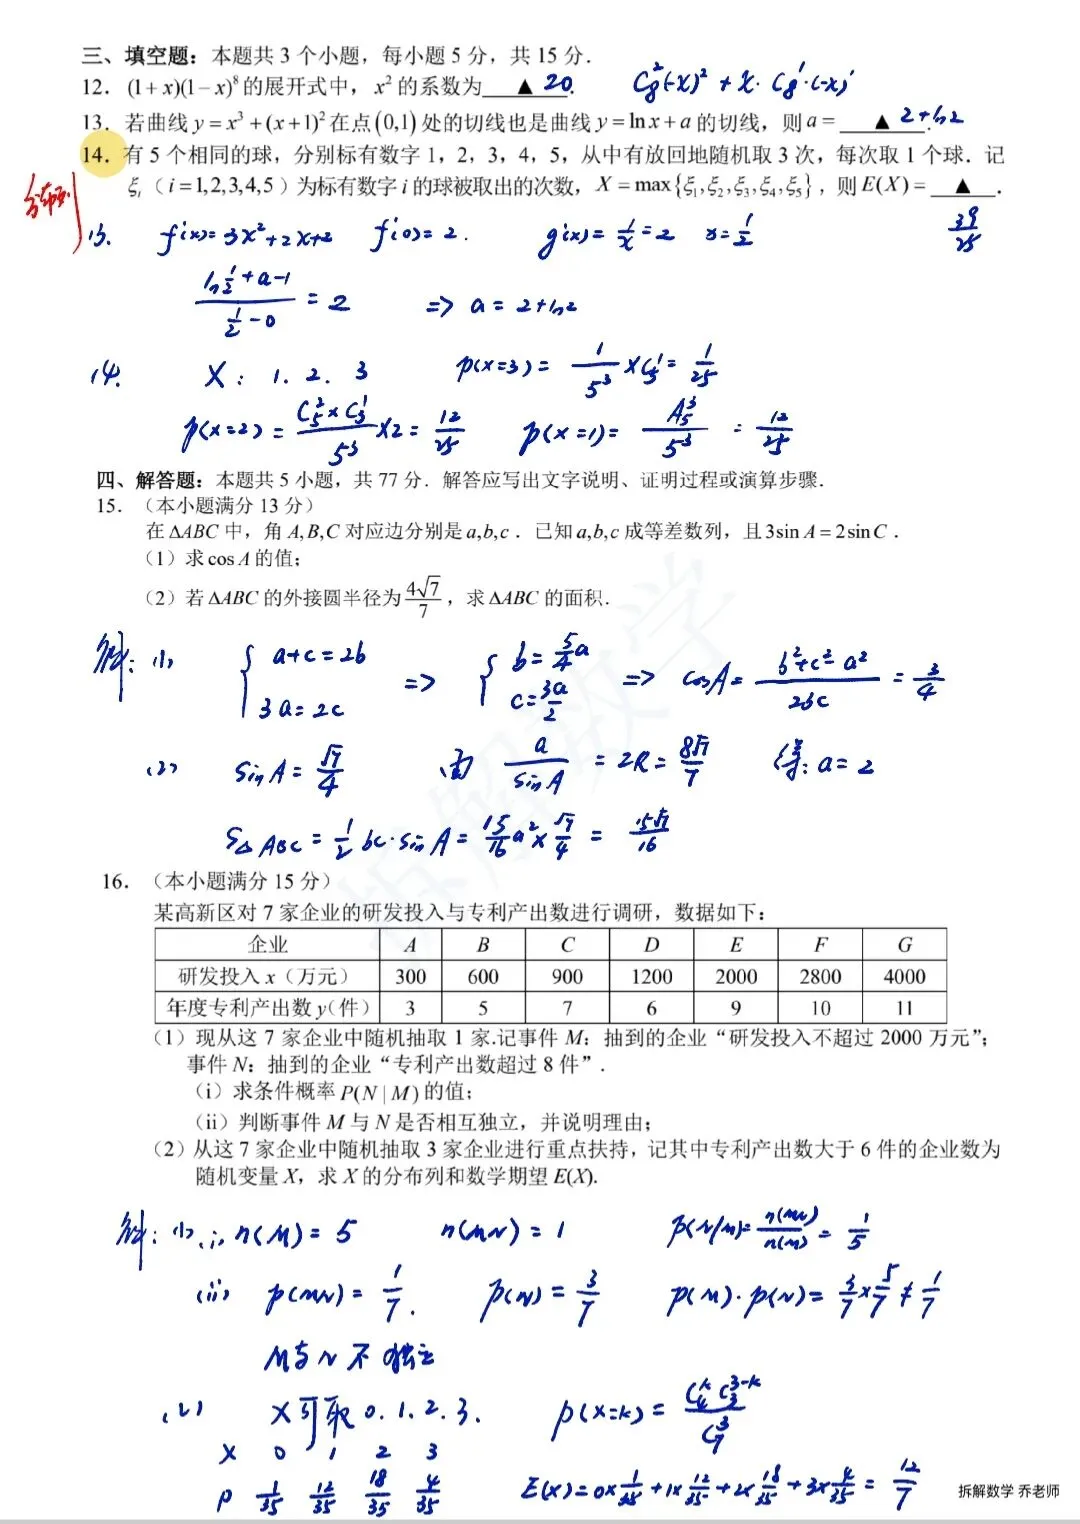 三、填空题：本题共 3 个小题，每小题 5 分，共 15 分．
12．(1+x)(1−x)⁸ 的展开式中，x² 的系数为 ▲ 20 ． C₈²(-x)² + x· C₈¹·(-x)¹
13．若曲线 y=x³+(x+1)² 在点 (0,1) 处的切线也是曲线 y=ln x+a 的切线，则 a= ▲ 2+ln2 ．
14．有 5 个相同的球，分别标有数字 1，2，3，4，5，从中有放回地随机取 3 次，每次取 1 个球．记
ξᵢ（i=1,2,3,4,5）为标有数字 i 的球被取出的次数，X=max{ξ₁,ξ₂,ξ₃,ξ₄,ξ₅}，则 E(X)= ▲ ．
分布列
39/25
13. f'(x)=3x²+2x+2 f'(0)=2. g'(x)=1/x=2 x=1/2
(ln 1/2 + a-1)/(1/2 -0) = 2 => a = 2+ln2
14. X: 1. 2. 3 p(x=3)= 1/5³ ×C₅¹= 1/25
p(x=2)= (C₅²×C₃¹)/5³ ×2= 12/25 p(x=1)= A₅³/5³ = 12/25
四、解答题：本题共 5 小题，共 77 分．解答应写出文字说明、证明过程或演算步骤．
15．（本小题满分 13 分）
在 ΔABC 中，角 A,B,C 对应边分别是 a,b,c．已知 a,b,c 成等差数列，且 3sin A=2sin C．
（1）求 cos A 的值；
（2）若 ΔABC 的外接圆半径为 4√7/7，求 ΔABC 的面积．
解: (1) { a+c=2b 3a=2c => { b=5/4 a c=3a/2 => cosA= (b²+c²-a²)/2bc = 3/4
(2) sinA= √7/4 由 a/sinA = 2R= 8√7/7 得: a=2
S△ABC = 1/2 bc·sinA= 15/16 a²× √7/4 = 15√7/16
16．（本小题满分 15 分）
某高新区对 7 家企业的研发投入与专利产出数进行调研，数据如下：
企业 A B C D E F G
研发投入 x（万元） 300 600 900 1200 2000 2800 4000
年度专利产出数 y（件） 3 5 7 6 9 10 11
（1）现从这 7 家企业中随机抽取 1 家.记事件 M：抽到的企业“研发投入不超过 2000 万元”；
事件 N：抽到的企业“专利产出数超过 8 件”．
（i）求条件概率 P(N | M) 的值；
（ii）判断事件 M 与 N 是否相互独立，并说明理由；
（2）从这 7 家企业中随机抽取 3 家企业进行重点扶持，记其中专利产出数大于 6 件的企业数为
随机变量 X，求 X 的分布列和数学期望 E(X).
解: (1) (i) n(M)= 5 n(MN)= 1 p(N|M)= n(MN)/n(M) = 1/5
(ii) p(MN)= 1/7. p(N)= 3/7 p(M)·p(N)= 3/7×5/7≠1/7
M与N不独立
(2) X可取 0. 1. 2. 3. p(x=k)= C₄ᵏ C₃³⁻ᵏ/C₇³
X 0 1 2 3
P 1/35 12/35 18/35 4/35 E(x)=0×1/35+1×12/35+2×18/35+3×4/35= 12/7
拆解数学 乔老师
拆解数学